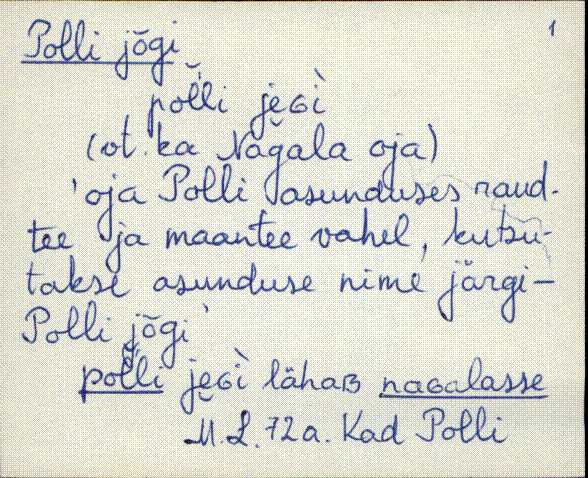 Polli jõgi 1
po̬l̆li je̮ɢì
(ot. ka Nagala oja)
'oja Polli asunduses raud-
tee ja maantee vahel, kutsu-
takse asunduse nime järgi –
Polli jõgi'
po̬l̆li je̮ɢì lähaʙ naɢalasse
M. L. 72 a. Kad Polli